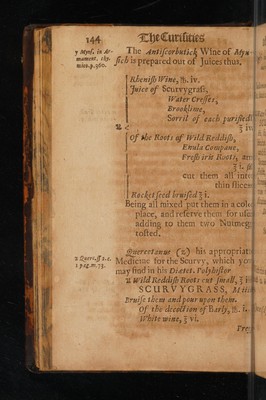 144 The Curiosities
y Myns. in Ar-
mament. chy-
mico.p.360.
The Antiscorbutick Wine of Myn-
sich is prepared out of Juices thus,
Rhenish Wine, ℔. iv.
Juice of Scurvygrass,
Water Cresses,
Brooklime,
Sorril of each purified
℥ iv
℞
Of the Roots of Wild Reddish,
Enula Campane,
Fresh iris Roots,
℥ i. ß
cut them all into
thin slices
Rocket seed bruised ℥ i.
Being all mixed put them in a cold
place, and reserve them for use
adding to them two Nutmeg
tosted.
Quercetanus (z) his appropriat
z Querc. ff 2. c.
1 pag. m. 75.
Medicine for the Scurvy, which you
may find in his Dietet. Polyhistor
℞ Wild Reddish Roots cut small, ℥
SCURVYGRASS,
Bruise them and pour upon them.
Of the decoction of Barly, ℔. i.
White wine, ℥ vi.